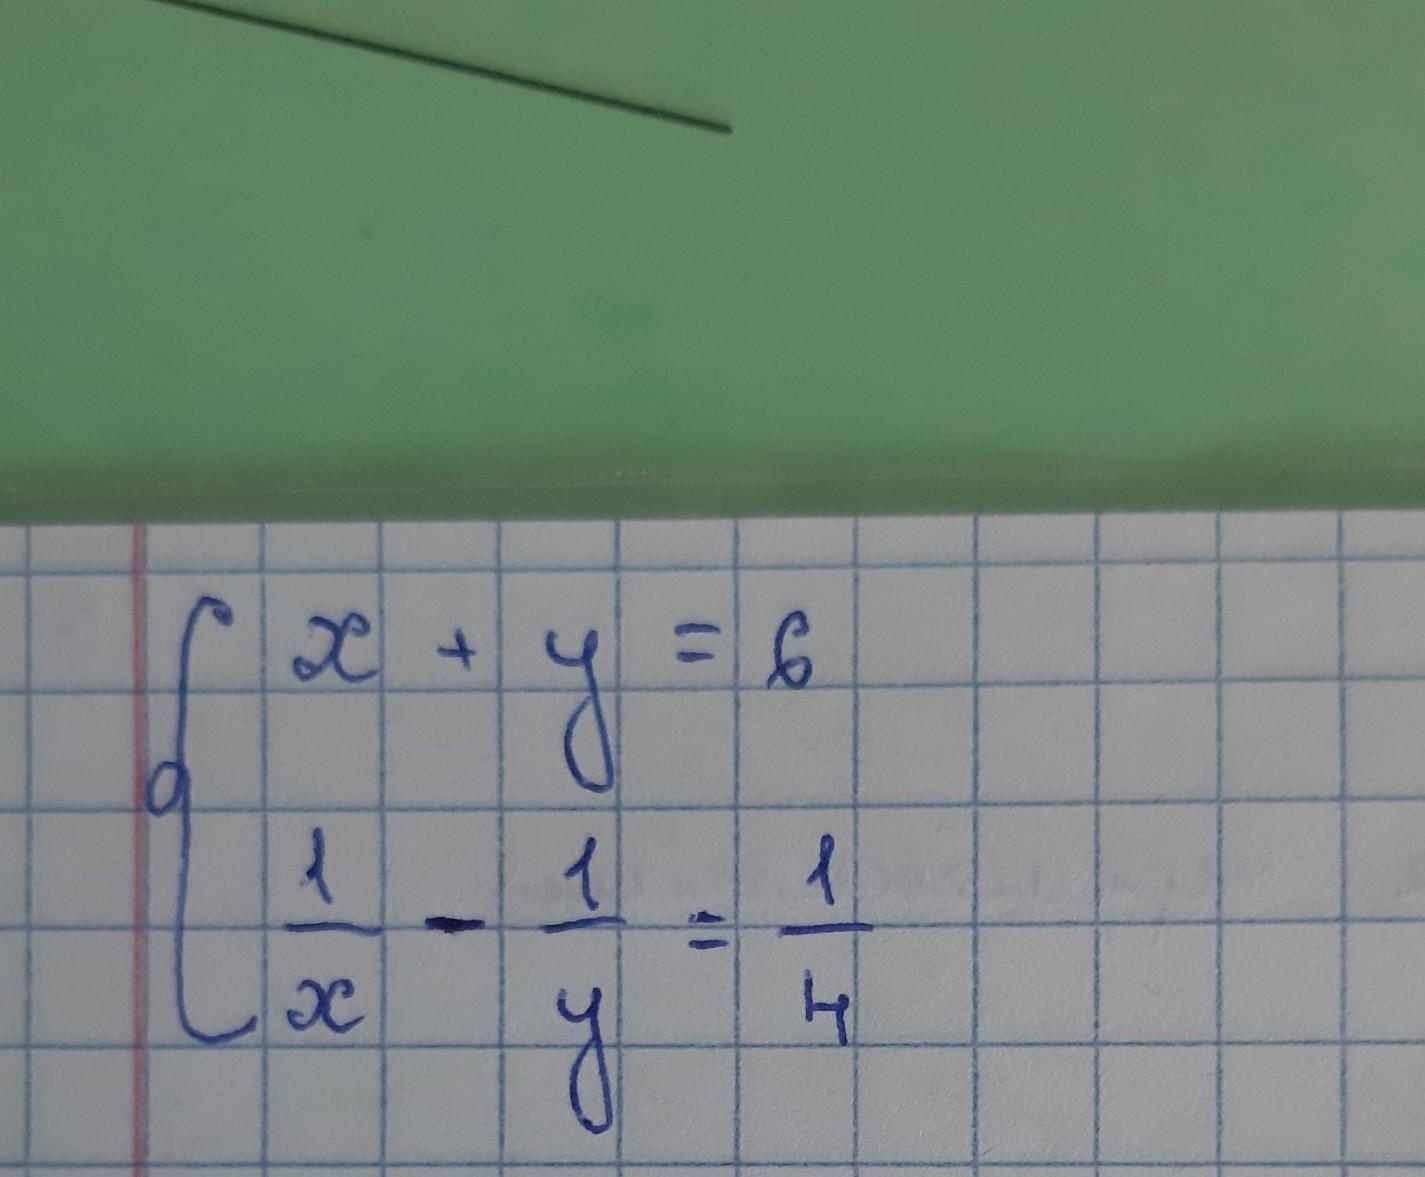 x + y = 6
1/x - 1/y = 1/4